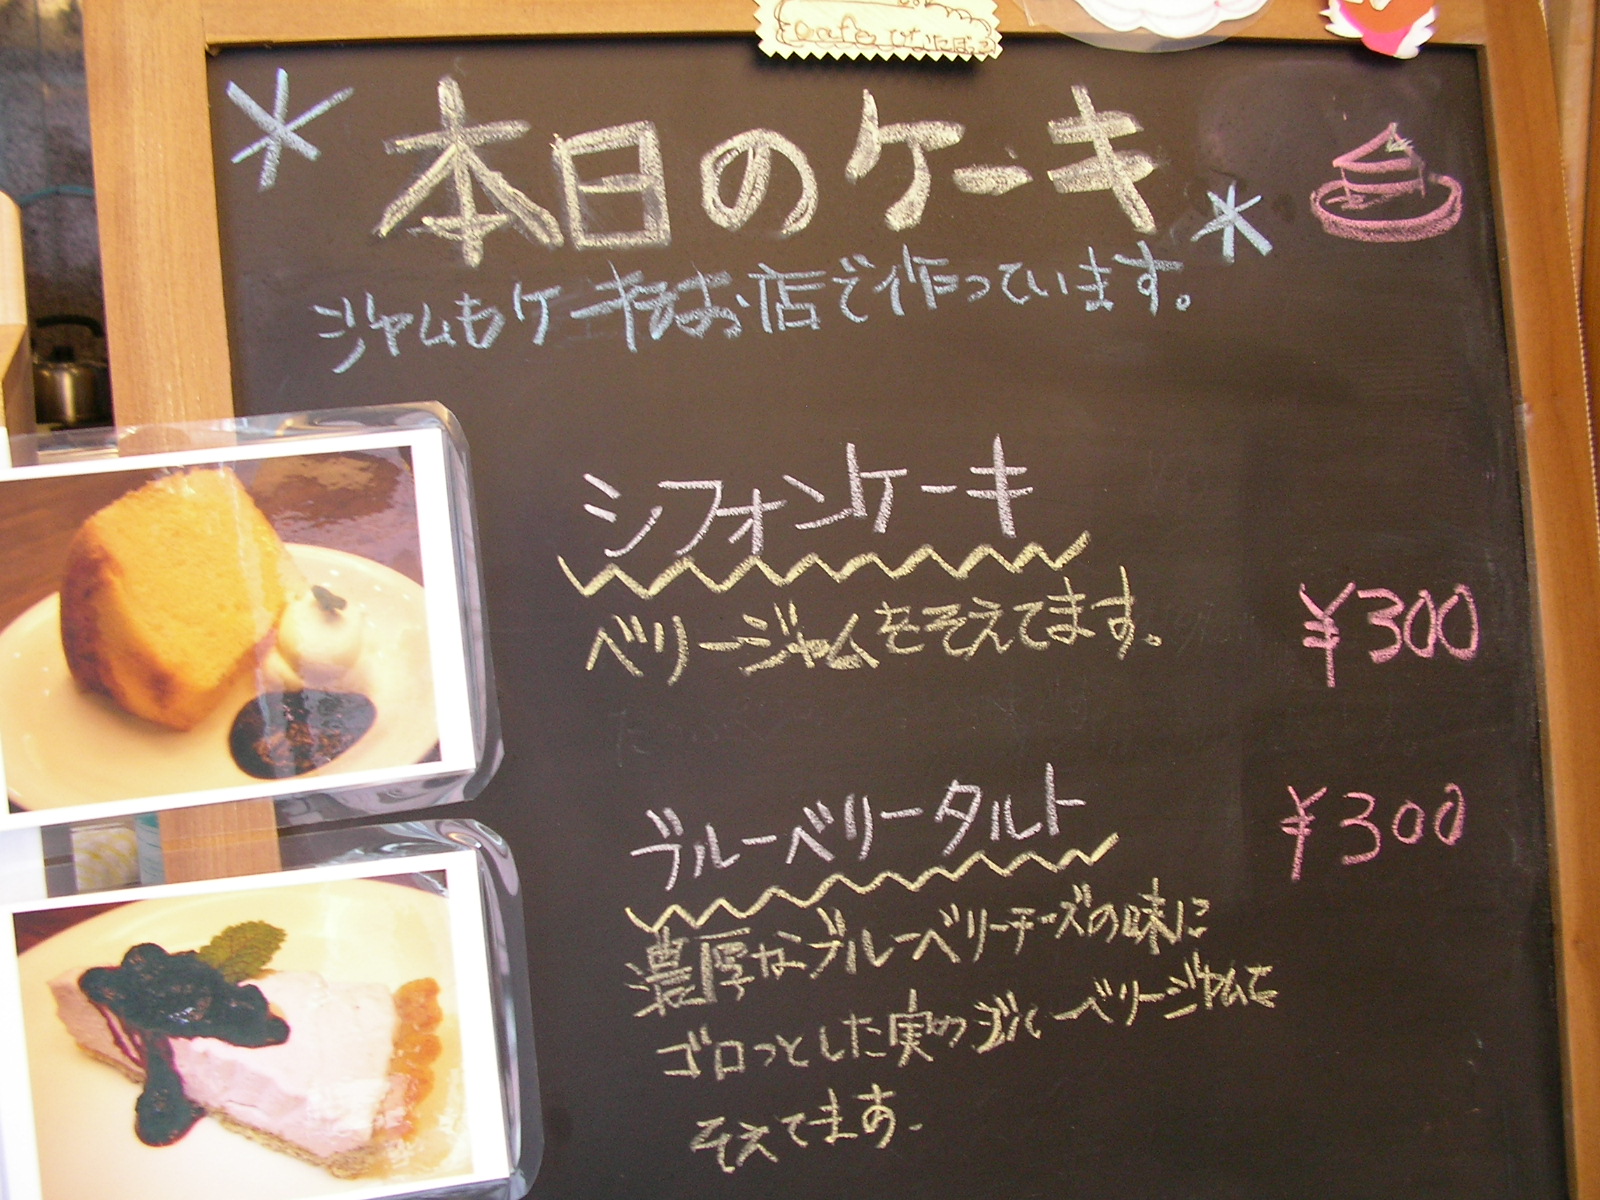 cafe ひなたぼっこ
本日のケーキ
ジャムもケーキもお店で作っています。
シフォンケーキ
ベリージャムをそえてます。
¥300
ブルーベリータルト
¥300
濃厚なブルーベリーチーズの味に
ゴロっとした実のブルーベリージャムを
そえてます。